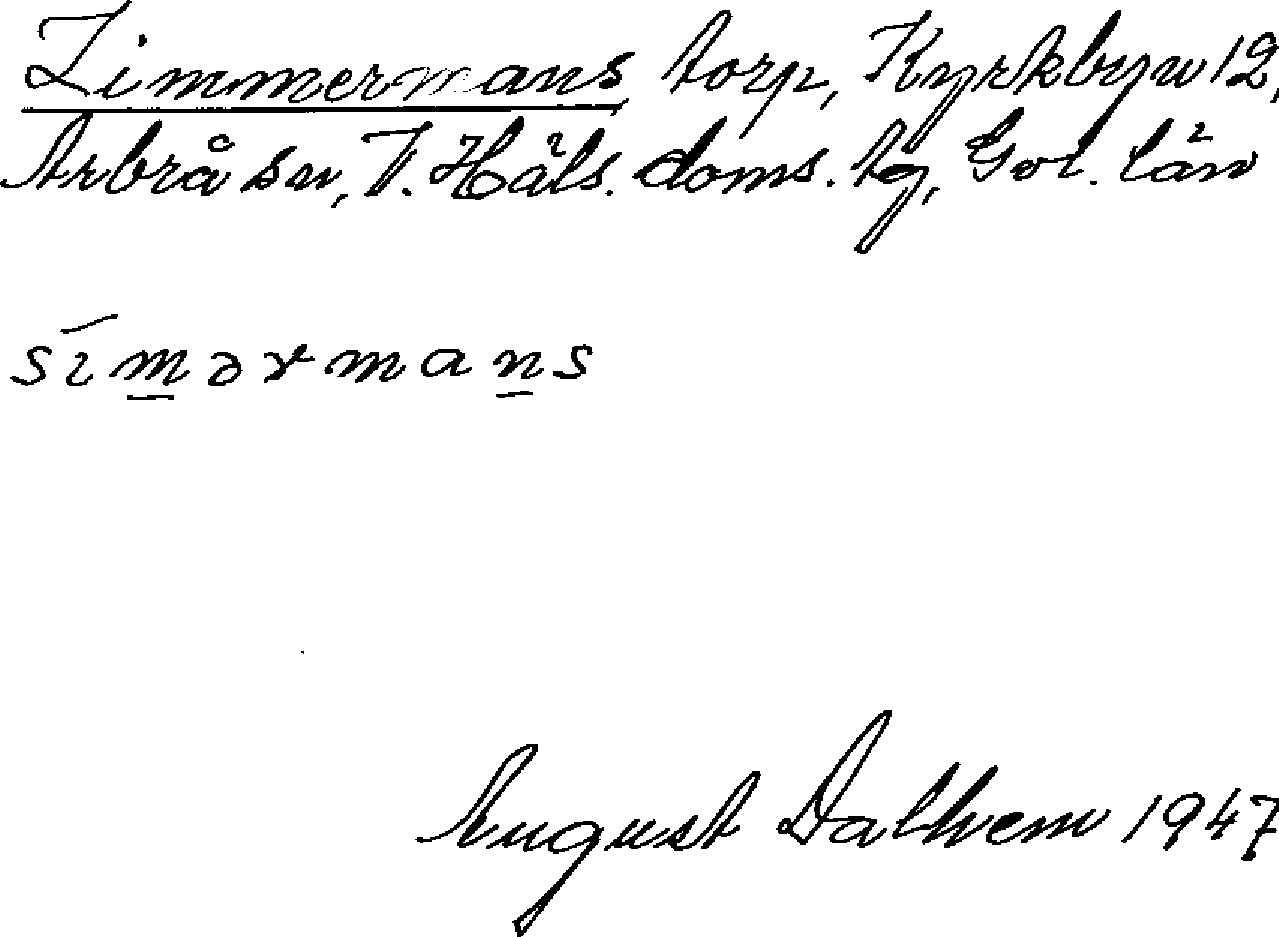 Zimmermans torp, Kyrkbyn 12,
Arbrå sn, V. Häls. doms. tg, Gvl. län
sīmərmans
August Dalhem 1947